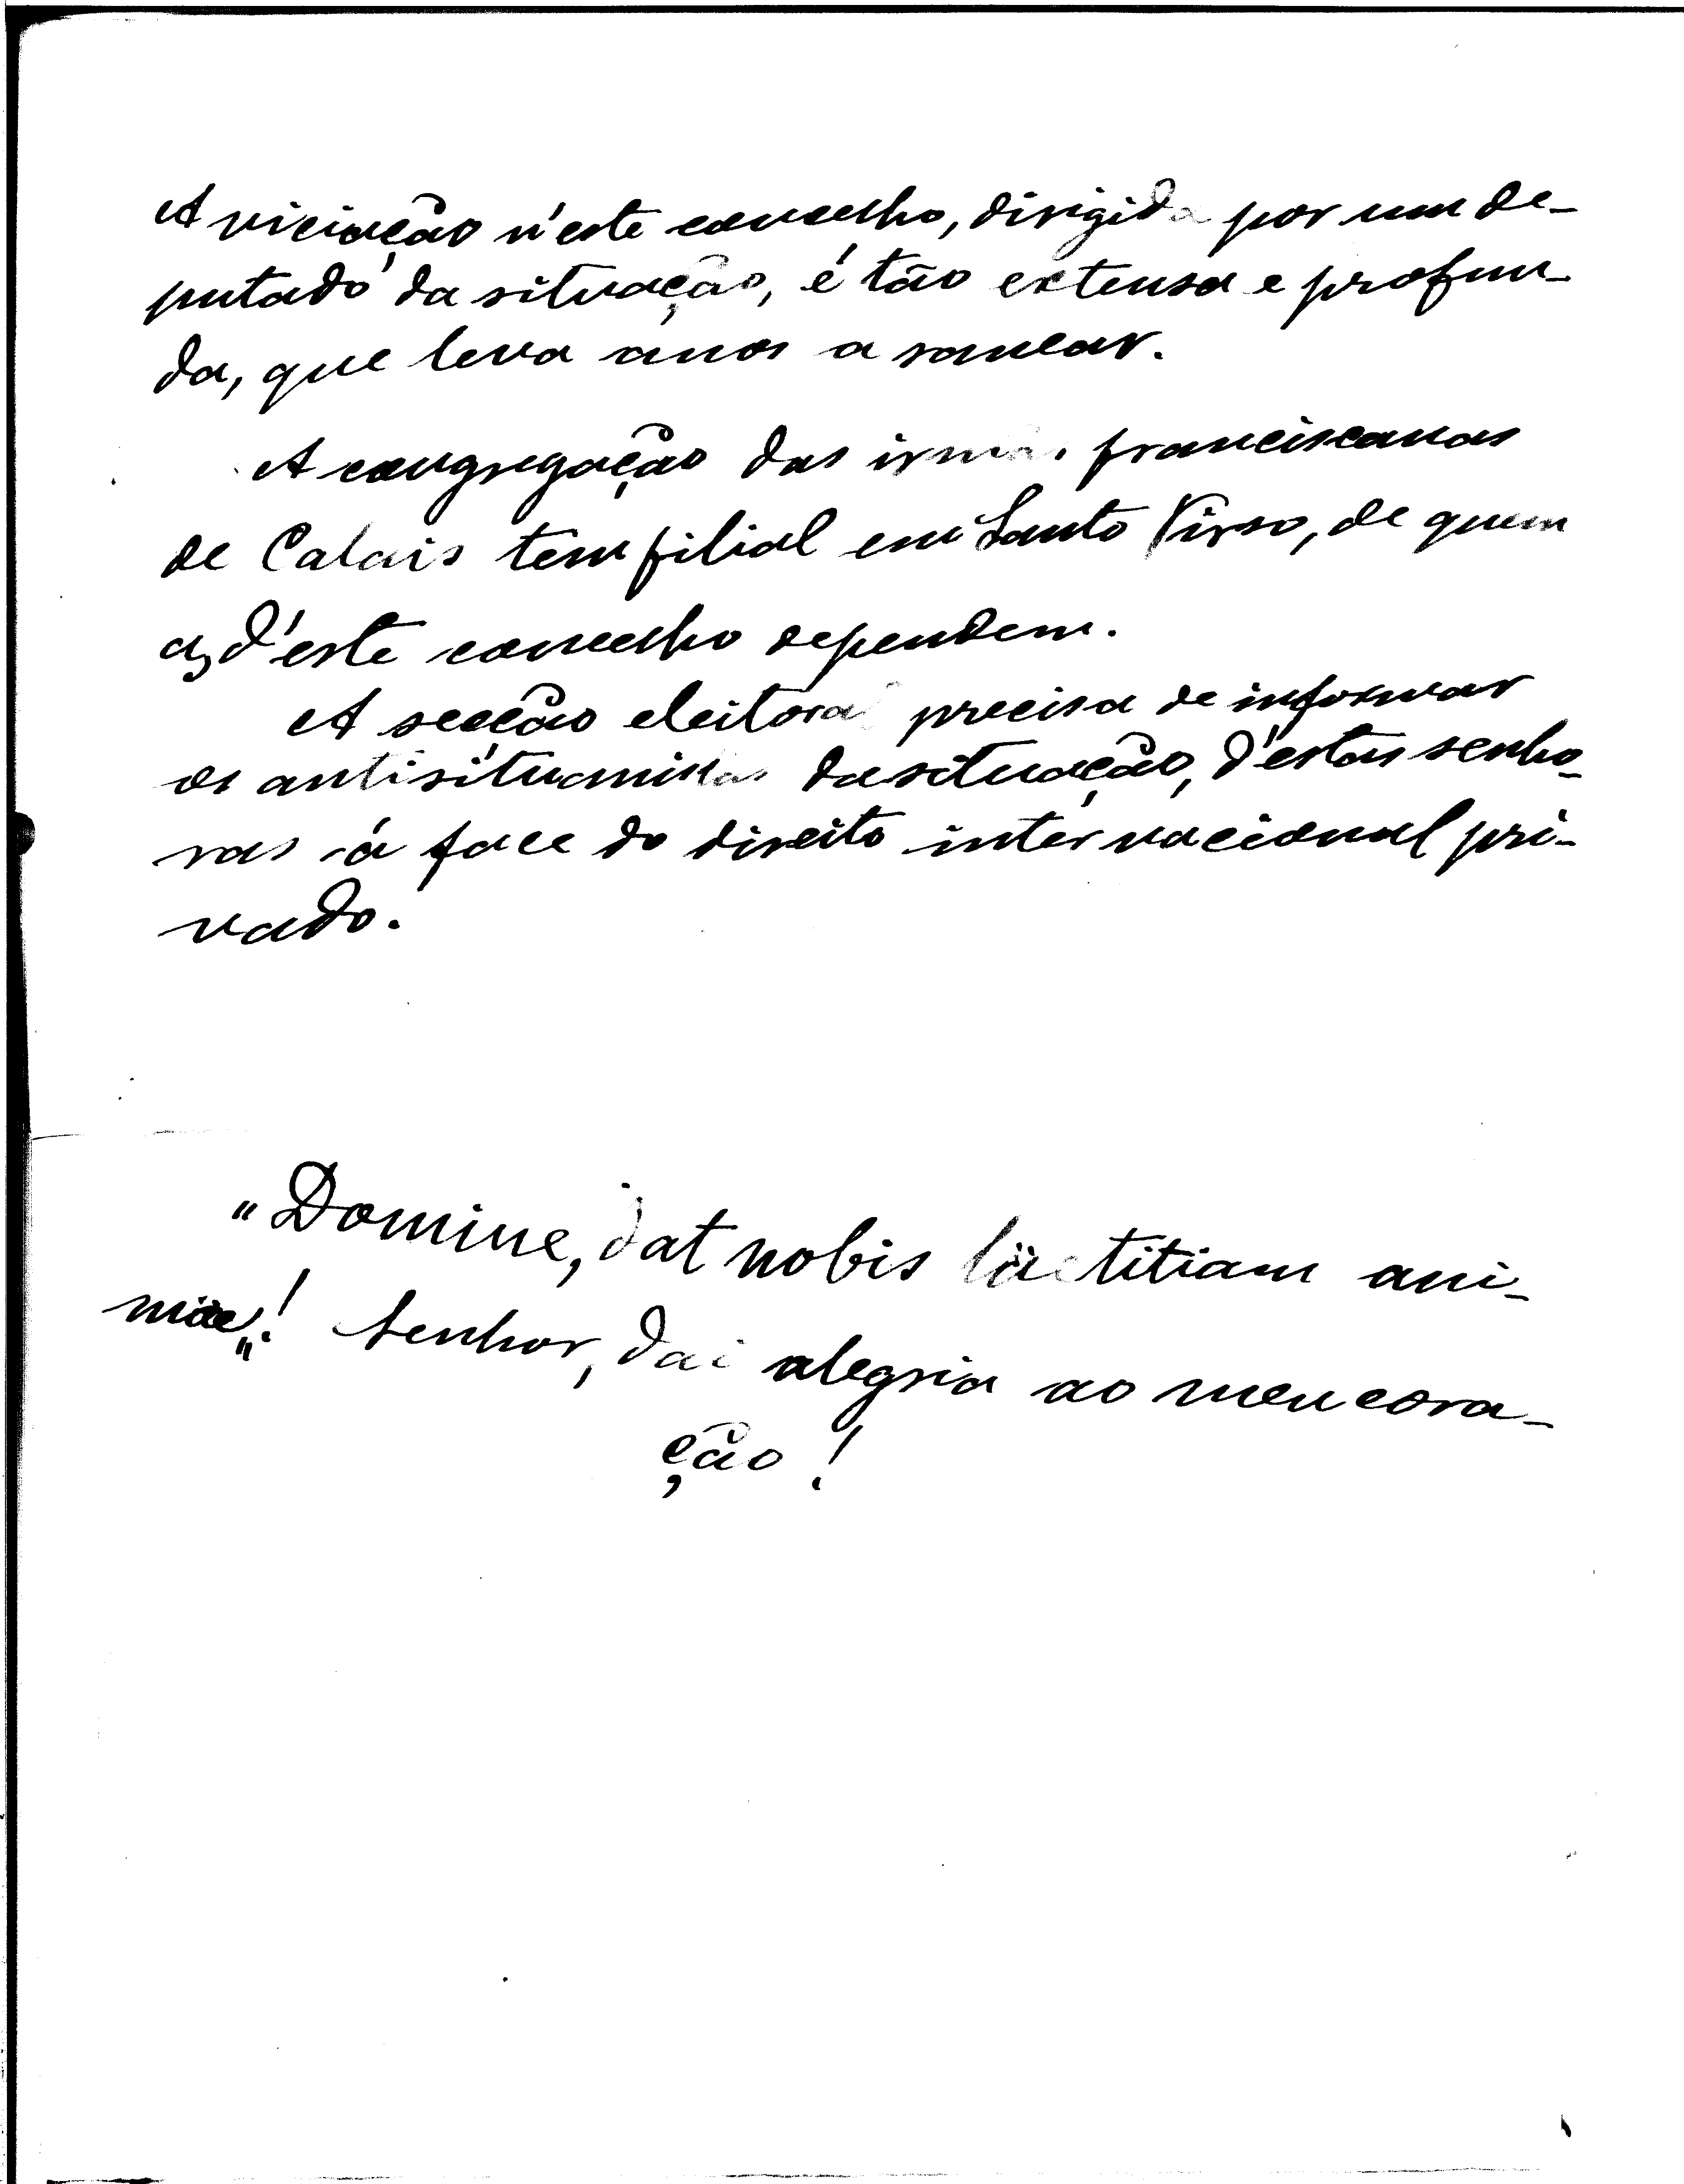 A viciação n'este concelho, dirigida por um de-
putado da situação, é tão extensa e profun-
da, que leva anos a sanear.
A congregação das irmãs franciscanas
de Calais tem filial em Santo Tirso, de quem
as d'este concelho dependem.
A secção eleitoral precisa de informar
os antisituanistas da situação, d'estas senho-
ras á face do direito internacional pri-
vado.
"Domine, dat nobis läetitiam ani-
mäe"! Senhor, dai alegria ao meu cora-
ção!